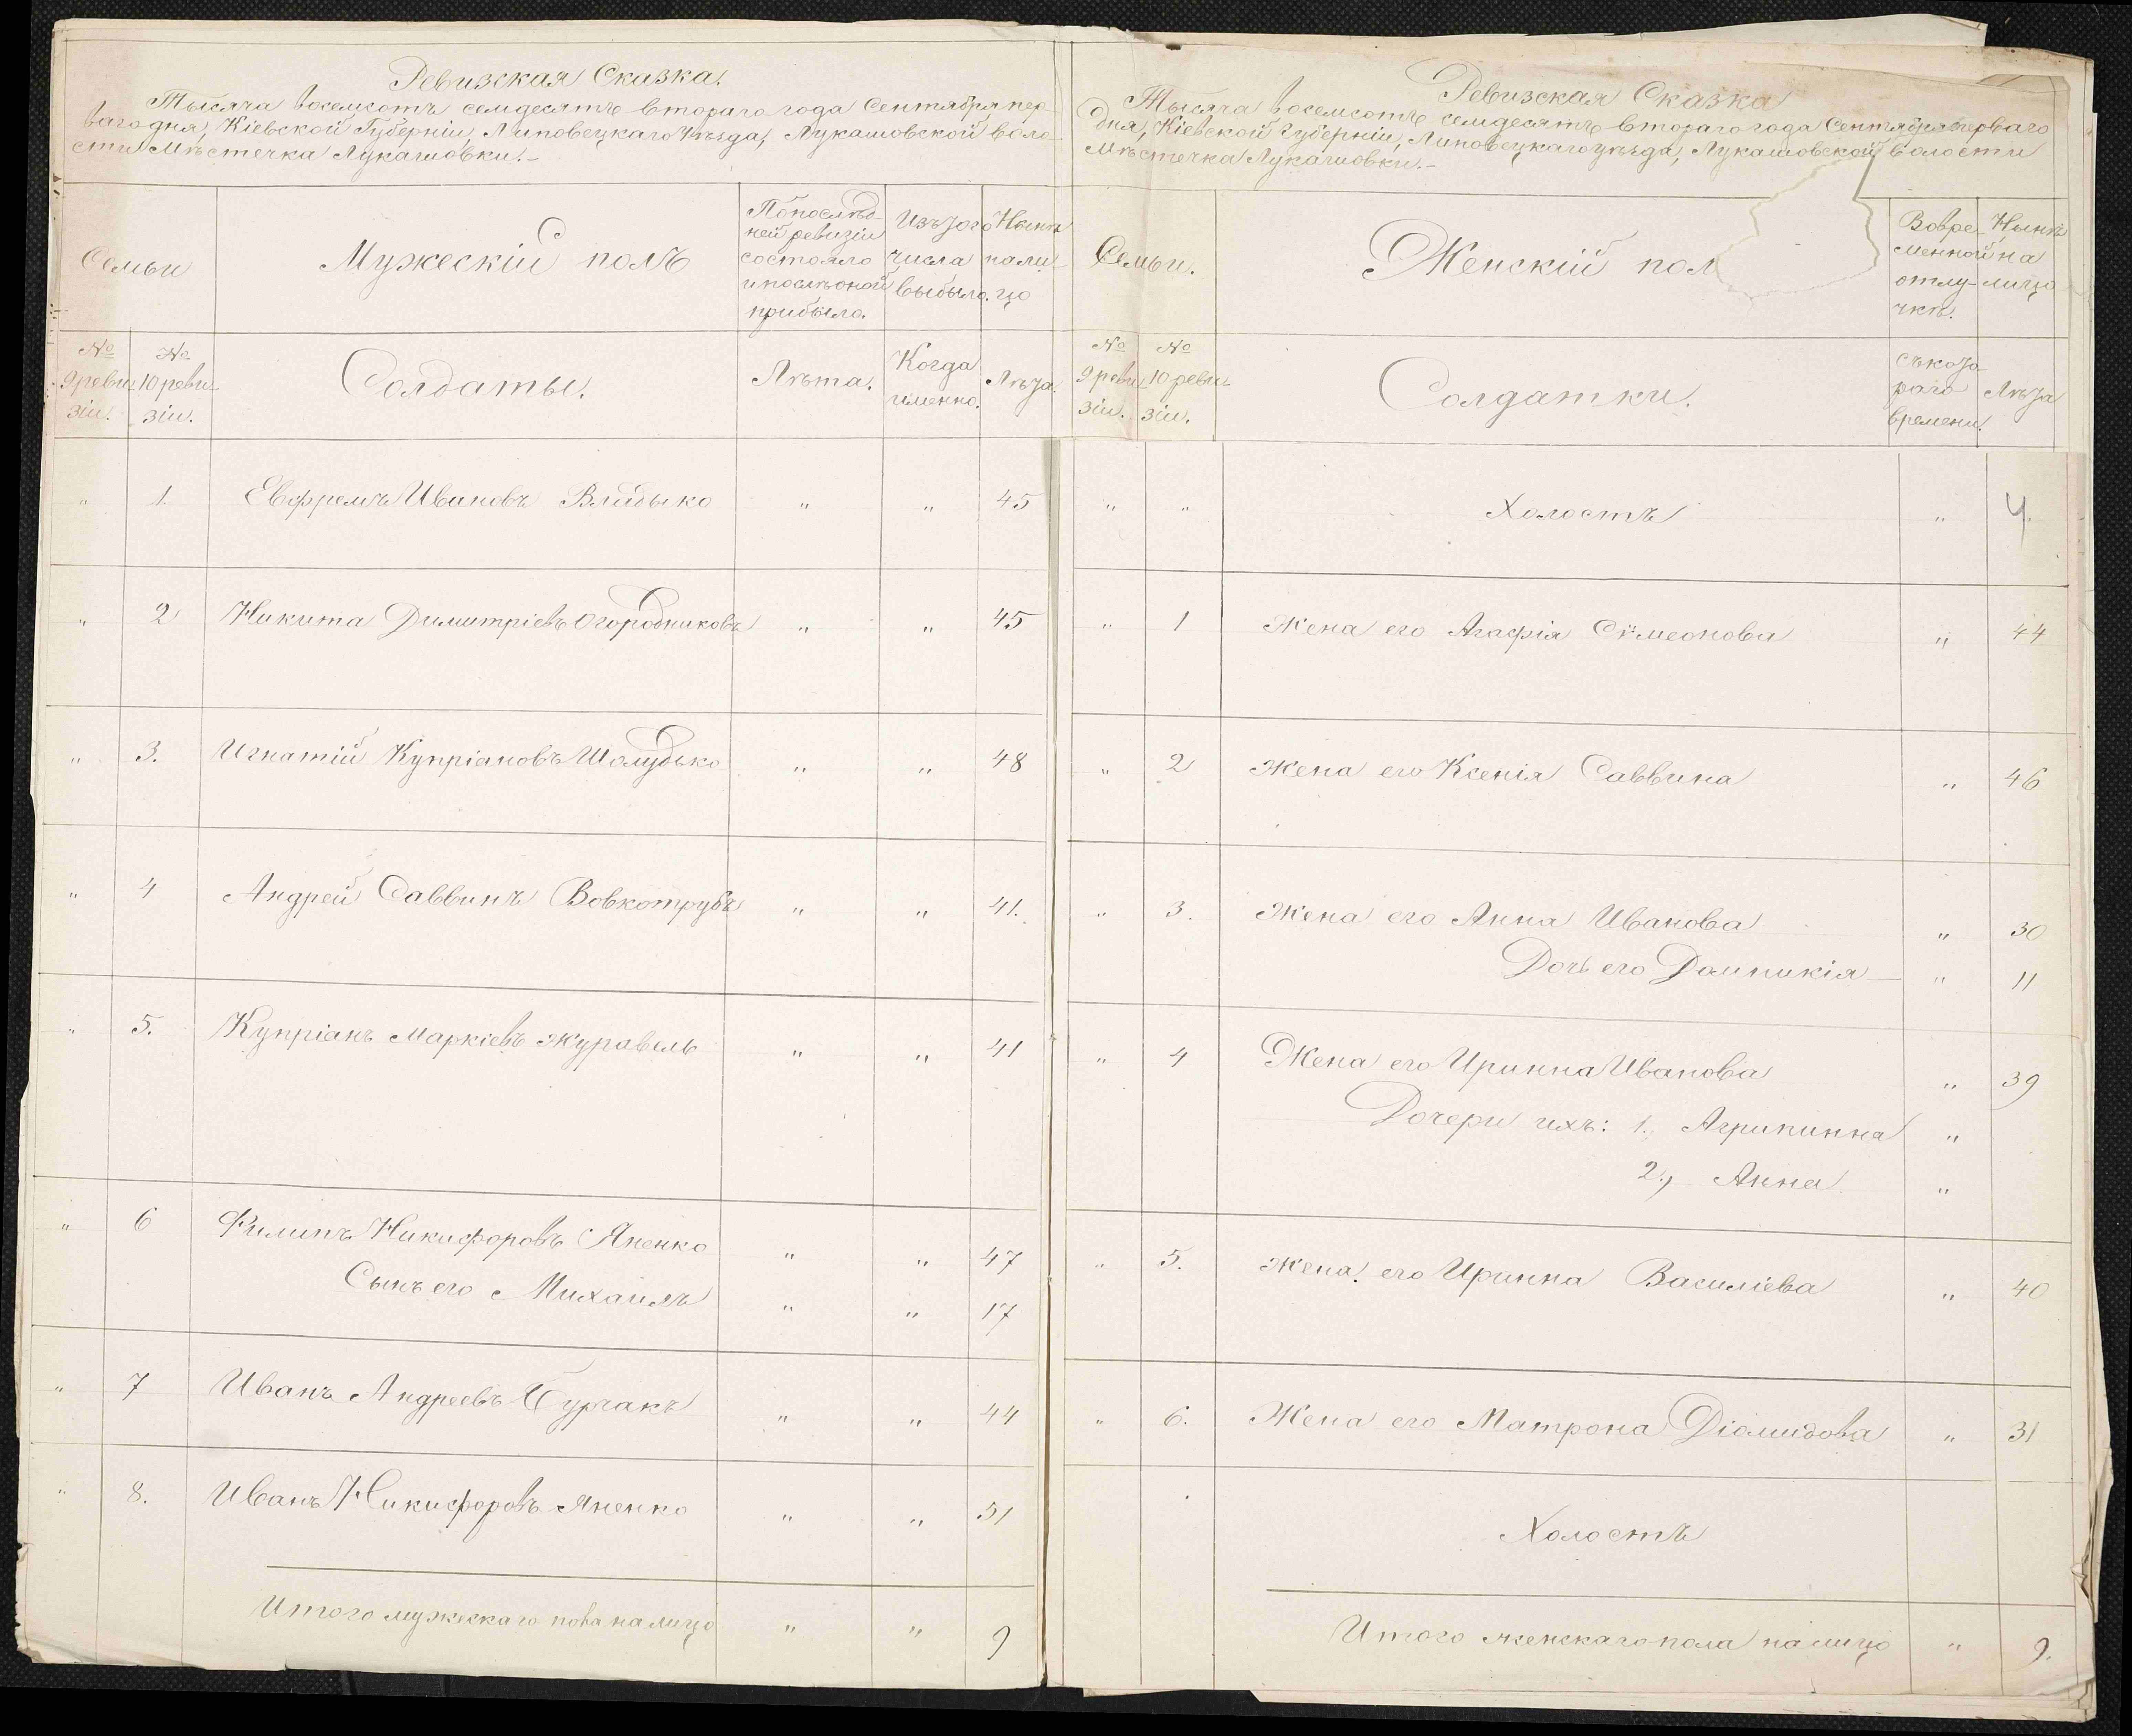 Ревизская Сказка.
Тысяча восемсотъ семдесятъ втораго года Сентября пер
ваго дня, Кіевской Губерніи, Липовецкаго Уѣзда, Лукашовской воло
сти Мѣстечка Лукашовки.-
Семьи
Мужескій полъ
Попослѣд-
ней ревизіи
состояло
и послѣ оной
прибыло.
Изъ того
числа
выбыло.
Нынѣ
нали-
цо
№
9 реви-
зіи.
№
10 реви-
зіи.
Солдаты.
Лѣта.
Когда
именно.
Лѣта.
" 1. Евфремъ Ивановъ Владыко " " 45
" 2 Никита Димитріевъ Огородниковъ " " 45
" 3. Игнатій Купріановъ Шолудько " " 48
" 4 Андрей Саввинъ Вовкотрубъ " " 41.
" 5. Купріанъ Маркіевъ Журавель " " 41
" 6 Филипъ Никифоровъ Яненко " " 47
Сынъ его Михаилъ " " 17
" 7 Иванъ Андреевъ Бурчакъ " " 44
" 8. Иванъ Никифоровъ Яненко " " 51
Итого мужескаго пола на лицо " " 9
Ревизская Сказка
Тысяча восемсотъ семдесятъ втораго года Сентября перваго
дня, Кіевской Губерніи, Липовецкаго уѣзда, Лукашовской волости
Мѣстечка Лукашовки.-
Семьи.
Женскій пол
Вовре-
менной
отлу-
чкѣ.
Нынѣ
на
лицо
№
9 реви-
зіи.
№
10 реви-
зіи.
Солдатки.
Съ кото
раго
времени.
Лѣта
" " Холостъ " 4.
" 1 Жена его Агафія Сѵмеонова " 44
" 2 Жена его Ксенія Саввина " 46
" 3. Жена его Анна Иванова " 30
Дочь его Домникія " 11
" 4 Жена его Иринна Иванова " 39
Дочери ихъ: 1., Агрипинна "
2., Анна "
" 5. Жена его Иринна Василіева " 40
" 6. Жена его Матрона Діомидова " 31
Холостъ
Итого женскаго пола на лицо " 9.